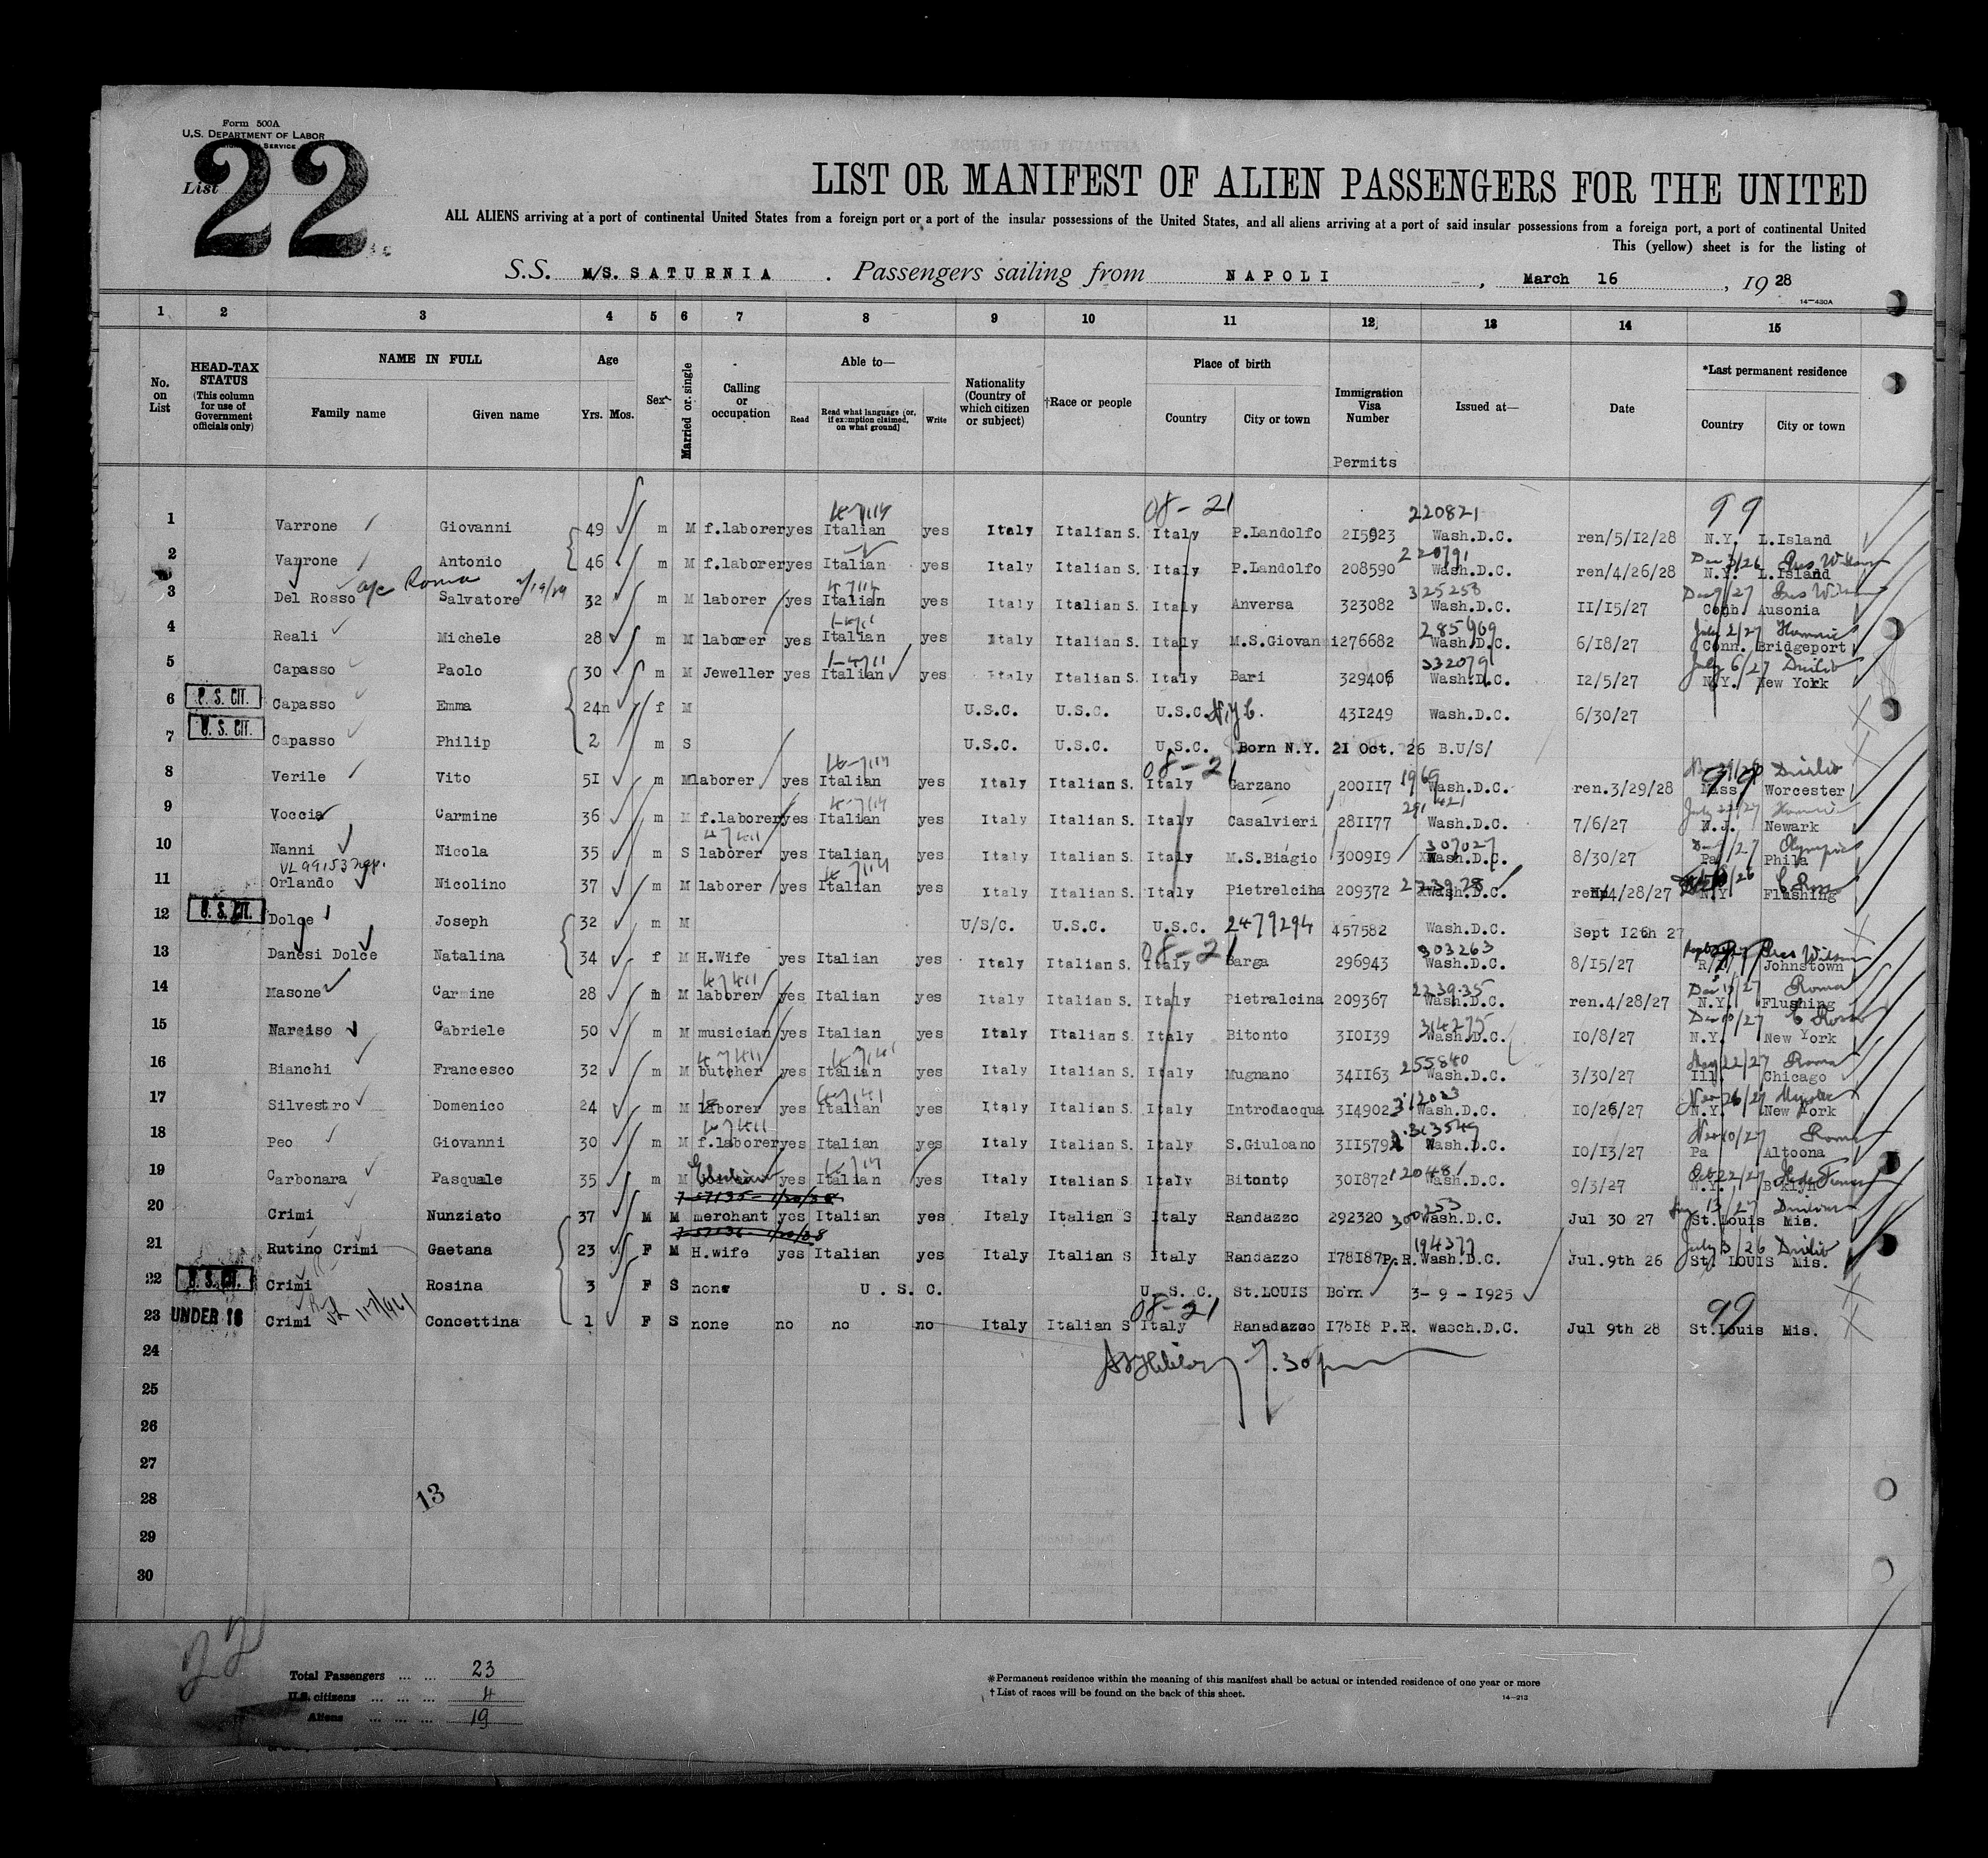 Form 500A
U.S. DEPARTMENT OF LABOR
SERVICE
List 22
LIST OR MANIFEST OF ALIEN PASSENGERS FOR THE UNITED
ALL ALIENS arriving at a port of continental United States from a foreign port or a port of the insular possessions of the United States, and all aliens arriving at a port of said insular possessions from a foreign port, a port of continental United
This (yellow) sheet is for the listing of
S.S. M/S. SATURNIA . Passengers sailing from NAPOLI , March 16 , 19 28
14—430A
1 2 3 4 5 6 7 8 9 10 11 12 13 14 15
No. on List
HEAD-TAX STATUS (This column for use of Government officials only)
NAME IN FULL
Family name Given name
Age
Yrs. Mos.
Sex
Married or single
Calling or occupation
Able to—
Read Read what language [or, if exemption claimed, on what ground] Write
Nationality (Country of which citizen or subject)
†Race or people
Place of birth
Country City or town
Immigration Visa Number
Permits
Issued at—
Date
*Last permanent residence
Country City or town
08-21 220821 99
1 Varrone Giovanni 49 m M f.laborer yes Italian yes Italy Italian S. Italy P.Landolfo 215923 Wash.D.C. ren/5/12/28 N.Y. L.Island
220791
2 Varrone Antonio 46 m M f.laborer yes Italian yes Italy Italian S. Italy P.Landolfo 208590 Wash.D.C. ren/4/26/28 N.Y. L.Island
Roma 325258
3 Del Rosso Salvatore 32 m M laborer yes Italian yes Italy Italian S. Italy Anversa 323082 Wash.D.C. 11/15/27 Conn. Ausonia
285969
4 Reali Michele 28 m M laborer yes Italian yes Italy Italian S. Italy M.S.Giovanni 276682 Wash.D.C. 6/18/27 Conn. Bridgeport
332079
5 Capasso Paolo 30 m M Jeweller yes Italian yes Italy Italian S. Italy Bari 329406 Wash.D.C. 12/5/27 N.Y. New York
6 U. S. CIT. Capasso Emma 24 f M U.S.C. U.S.C. U.S.C. N.Y.C. 431249 Wash.D.C. 6/30/27
7 U. S. CIT. Capasso Philip 2 m S U.S.C. U.S.C. U.S.C. Born N.Y. 21 Oct. 26 B.U/S/
08-21 99
8 Verile Vito 51 m M laborer yes Italian yes Italy Italian S. Italy Garzano 200117 Wash.D.C. ren.3/29/28 Mass. Worcester
9 Voccia Carmine 36 m M f.laborer yes Italian yes Italy Italian S. Italy Casalvieri 281177 Wash.D.C. 7/6/27 N.J. Newark
307027 Olympic
10 Nanni Nicola 35 m S laborer yes Italian yes Italy Italian S. Italy M.S.Biagio 300919 Wash.D.C. 8/30/27 Pa Phila
11 Orlando Nicolino 37 m M laborer yes Italian yes Italy Italian S. Italy Pietrelcina 209372 Wash.D.C. ren 4/28/27 N.Y. Flushing
12 U. S. CIT. Dolce Joseph 32 m M U/S/C. U.S.C. U.S.C. 2479294 457582 Wash.D.C. Sept 126h 27
08-21 303263
13 Danesi Dolce Natalina 34 f M H.Wife yes Italian yes Italy Italian S. Italy Barga 296943 Wash.D.C. 8/15/27 Johnstown
223935 Roma
14 Masone Carmine 28 m M laborer yes Italian yes Italy Italian S. Italy Pietralcina 209367 Wash.D.C. ren.4/28/27 N.Y. Flushing
314275
15 Narciso Gabriele 50 m M musician yes Italian yes Italy Italian S. Italy Bitonto 310139 Wash.D.C. 10/8/27 N.Y. New York
255840 Roma
16 Bianchi Francesco 32 m M butcher yes Italian yes Italy Italian S. Italy Mugnano 341163 Wash.D.C. 3/30/27 Ill. Chicago
17 Silvestro Domenico 24 m M laborer yes Italian yes Italy Italian S. Italy Introdacqua 314902 Wash.D.C. 10/26/27 N.Y. New York
313549 Roma
18 Peo Giovanni 30 m M f.laborer yes Italian yes Italy Italian S. Italy S.Giuloano 311579 Wash.D.C. 10/13/27 Pa Altoona
19 Carbonara Pasquale 35 m M yes Italian yes Italy Italian S. Italy Bitonto 301872 Wash.D.C. 9/3/27 N.Y. Bklyn
20 Crimi Nunziato 37 M M merchant yes Italian yes Italy Italian S Italy Randazzo 292320 Wash.D.C. Jul 30 27 St.Louis Mis.
194377
21 Rutino Crimi Gaetana 23 F M H.wife yes Italian yes Italy Italian S Italy Randazzo 178187 P.R. Wash.D.C. Jul.9th 26 St. LOUIS Mis.
22 U. S. CIT. Crimi Rosina 3 F S none U . S. C. U. S. C. St.LOUIS Born 3- 9 - 1925
08-21 99
23 UNDER 16 Crimi Concettina 1 F S none no no no Italy Italian S Italy Ranadazzo 17818 P.R. Wasch.D.C. Jul 9th 28 St.Louis Mis.
24
25
26
27
28
29
30
13
22
Total Passengers ... ... 23
U.S. citizens ... ... ... 4
Aliens ... ... ... 19
*Permanent residence within the meaning of this manifest shall be actual or intended residence of one year or more
† List of races will be found on the back of this sheet.
14—213